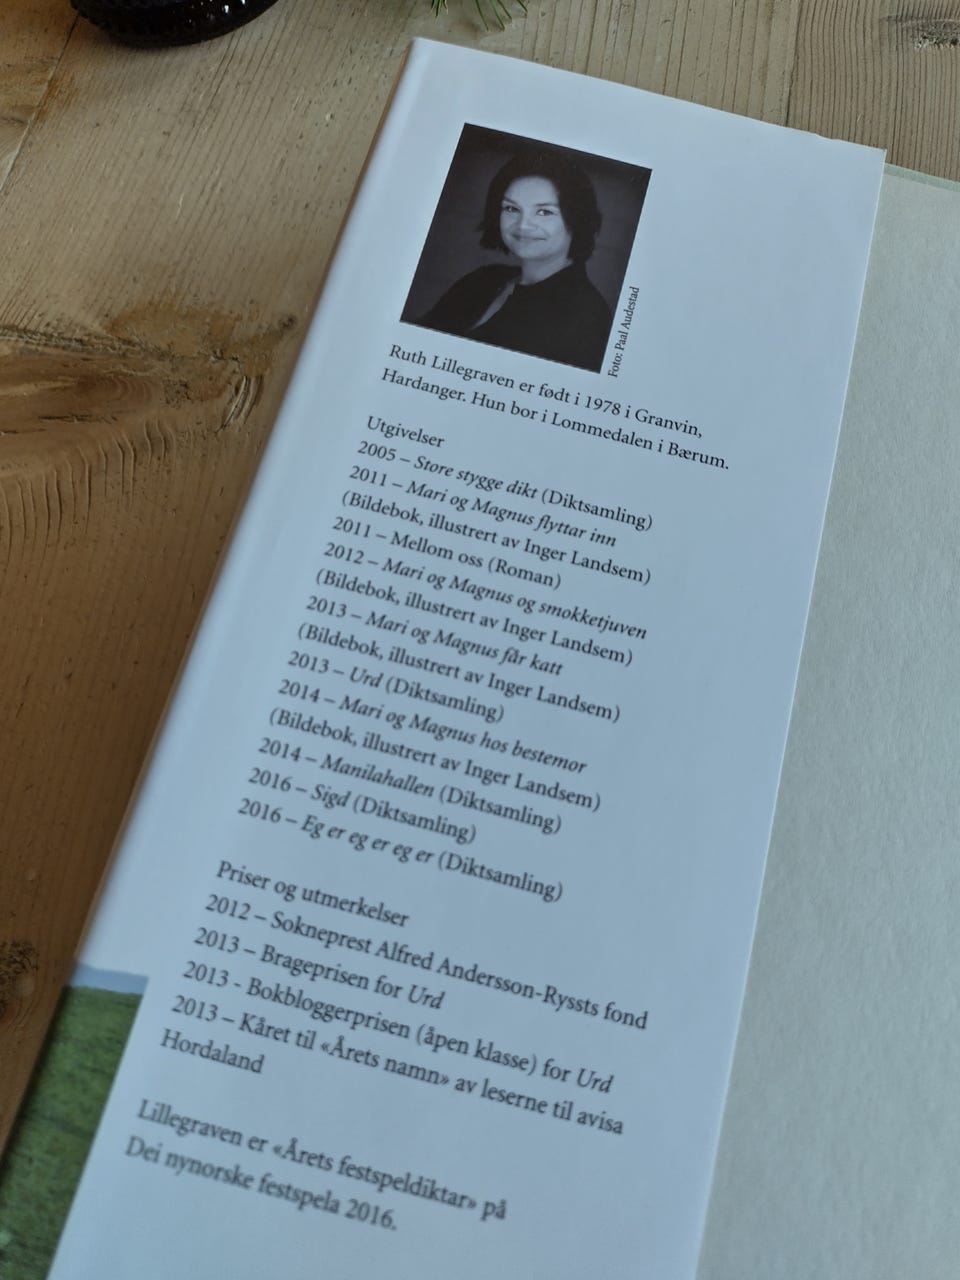 Foto: Paal Audestad
Ruth Lillegraven er født i 1978 i Granvin,
Hardanger. Hun bor i Lommedalen i Bærum.
Utgivelser
2005 – Store stygge dikt (Diktsamling)
2011 – Mari og Magnus flyttar inn
(Bildebok, illustrert av Inger Landsem)
2011 – Mellom oss (Roman)
2012 – Mari og Magnus og smokketjuven
(Bildebok, illustrert av Inger Landsem)
2013 – Mari og Magnus får katt
(Bildebok, illustrert av Inger Landsem)
2013 – Urd (Diktsamling)
2014 – Mari og Magnus hos bestemor
(Bildebok, illustrert av Inger Landsem)
2014 – Manilahallen (Diktsamling)
2016 – Sigd (Diktsamling)
2016 – Eg er eg er eg er (Diktsamling)
Priser og utmerkelser
2012 – Sokneprest Alfred Andersson-Ryssts fond
2013 – Brageprisen for Urd
2013 - Bokbloggerprisen (åpen klasse) for Urd
2013 – Kåret til «Årets namn» av leserne til avisa
Hordaland
Lillegraven er «Årets festspeldiktar» på
Dei nynorske festspela 2016.